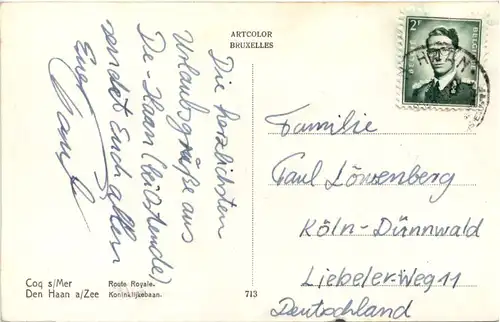 ARTCOLOR
BRUXELLES
Die herzlichsten
Urlaubsgrüße aus
De-Haan (bei Ostende)
sendet Euch allen
Euer
Coq s/Mer Route Royale.
Den Haan a/Zee Koninklijkebaan.
713
2F
Familie
Paul Löwenberg
Köln-Dünnwald
Liebeler-Weg 11
Deutschland